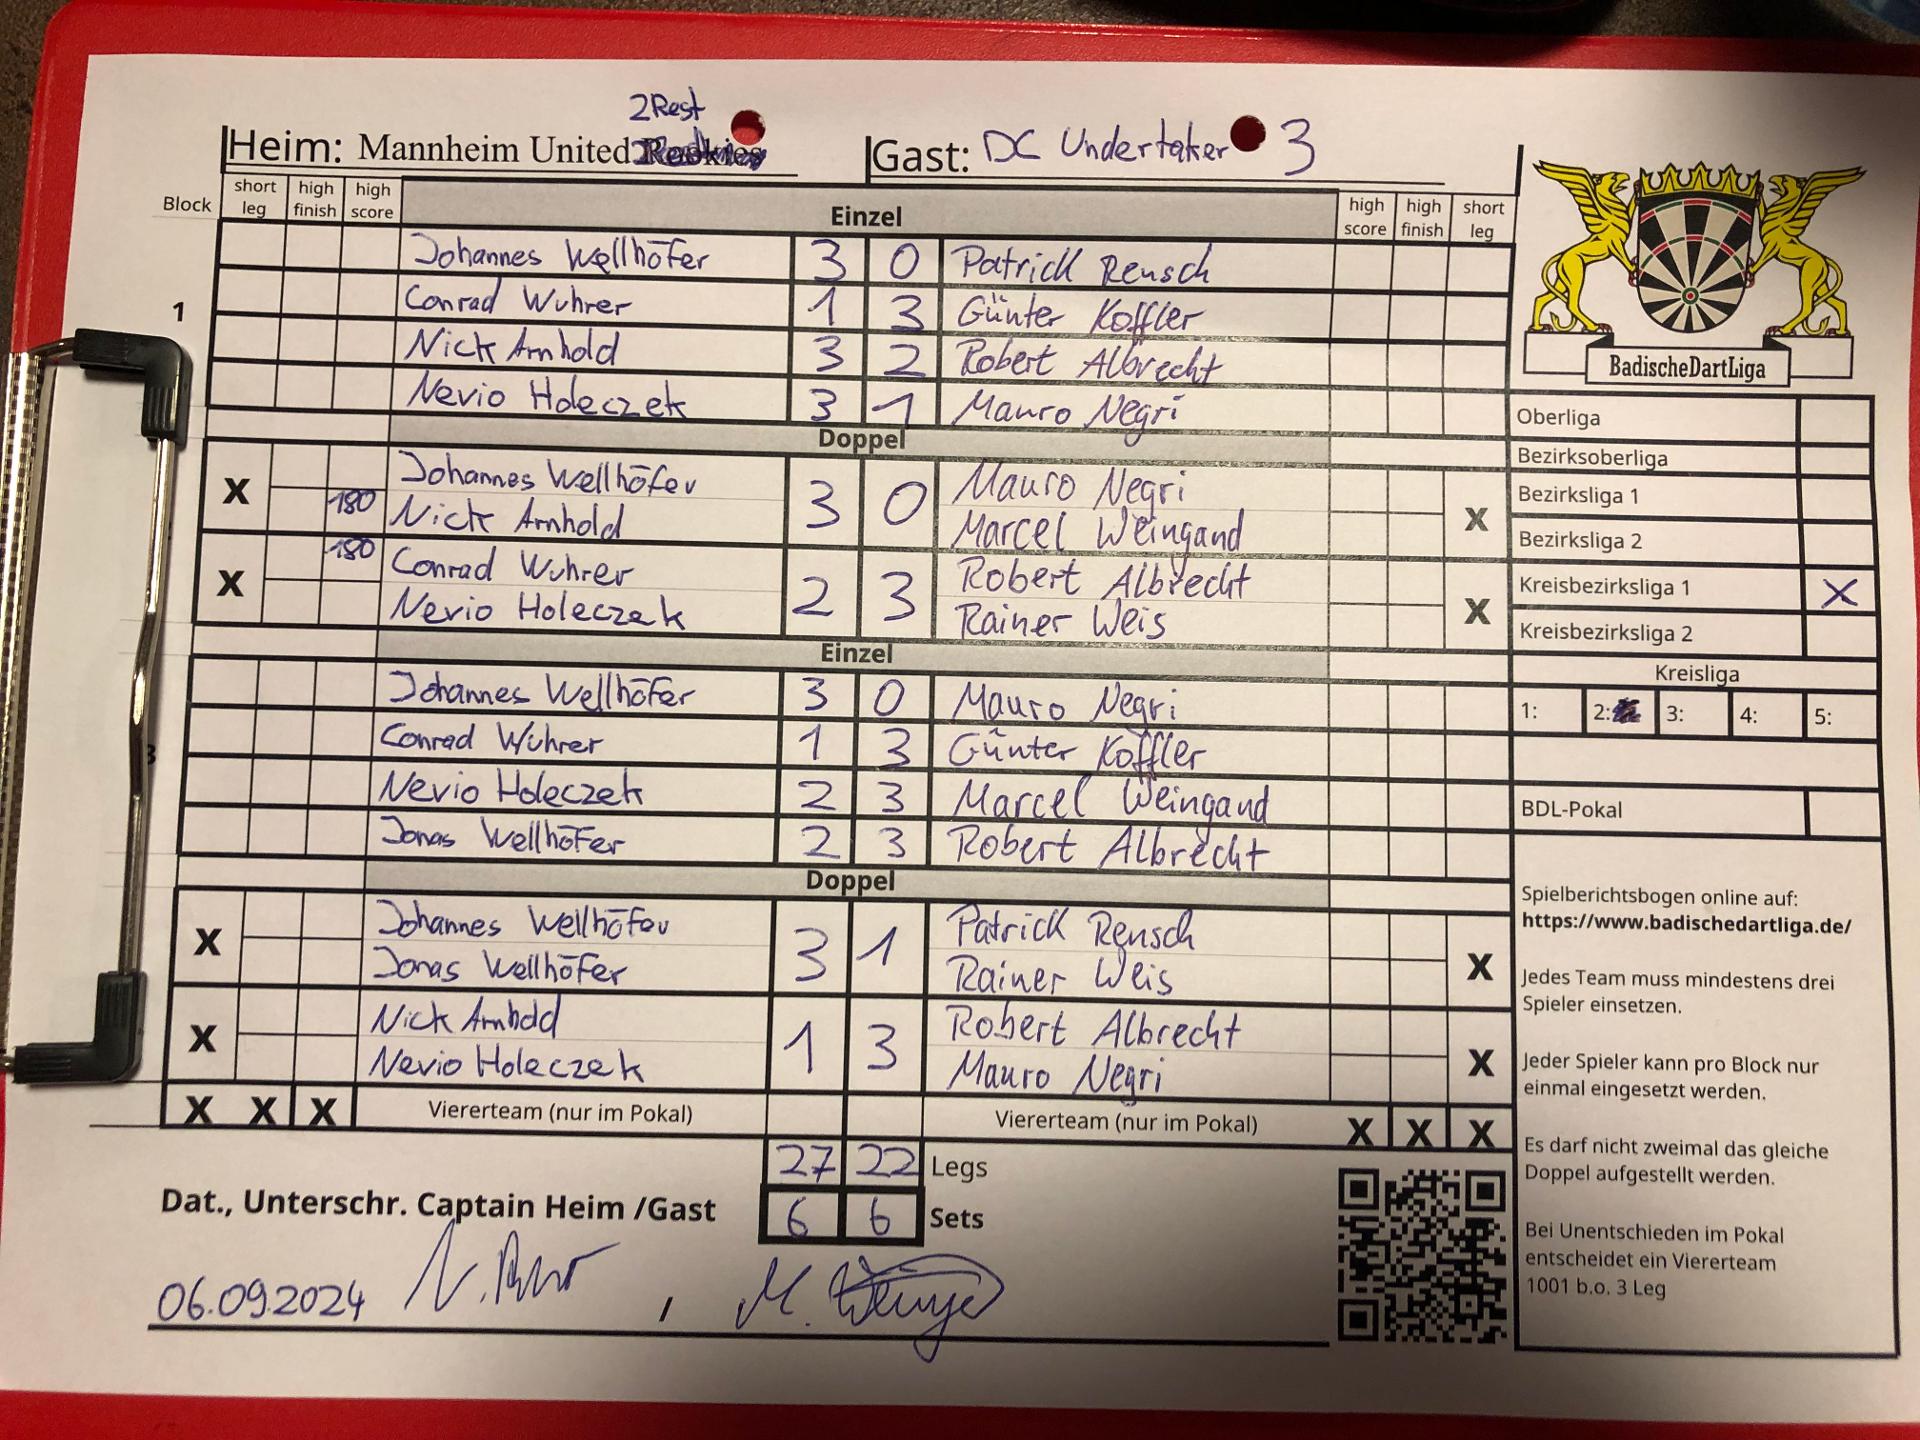 2Rest
Heim: Mannheim United Gast: DC Undertaker 3
Block short leg high finish high score Einzel high score high finish short leg
Johannes Wellhöfer 3 0 Patrick Rensch
1 Conrad Wuhrer 1 3 Günter Koffler
Nick Arnhold 3 2 Robert Albrecht
Nevio Holeczek 3 1 Mauro Negri
Doppel
X Johannes Wellhöfer 3 0 Mauro Negri X
180 Nick Arnhold Marcel Weingand
X 180 Conrad Wuhrer 2 3 Robert Albrecht X
Nevio Holeczek Rainer Weis
Einzel
Johannes Wellhöfer 3 0 Mauro Negri
Conrad Wuhrer 1 3 Günter Koffler
3 Nevio Holeczek 2 3 Marcel Weingand
Jonas Wellhöfer 2 3 Robert Albrecht
Doppel
X Johannes Wellhöfer 3 1 Patrick Rensch X
Jonas Wellhöfer Rainer Weis
X Nick Arnhold 1 3 Robert Albrecht X
Nevio Holeczek Mauro Negri
X X X Vierterteam (nur im Pokal) Vierterteam (nur im Pokal) X X X
27 22 Legs
Dat., Unterschr. Captain Heim /Gast 6 6 Sets
06.09.2024 /
BadischeDartLiga
Oberliga
Bezirksoberliga
Bezirksliga 1
Bezirksliga 2
Kreisbezirksliga 1 X
Kreisbezirksliga 2
Kreisliga
1: 2: 3: 4: 5:
BDL-Pokal
Spielberichtsbogen online auf:
https://www.badischedartliga.de/
Jedes Team muss mindestens drei
Spieler einsetzen.
Jeder Spieler kann pro Block nur
einmal eingesetzt werden.
Es darf nicht zweimal das gleiche
Doppel aufgestellt werden.
Bei Unentschieden im Pokal
entscheidet ein Viererteam
1001 b.o. 3 Leg